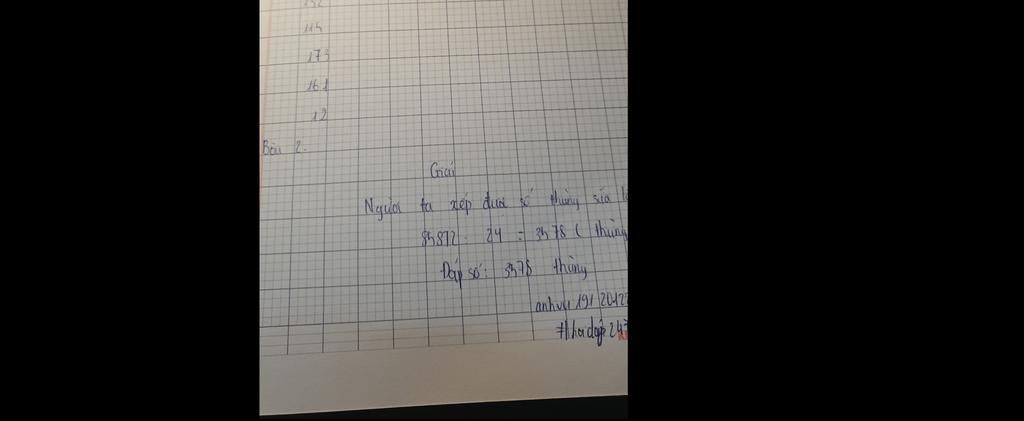 114
173
161
12
Bài 2.
Giải
Người ta xếp được số thùng sữa là
: 24 = 3478 ( thùng
Đáp số: 3478 thùng
anhvu 191 2012
#hoidap247